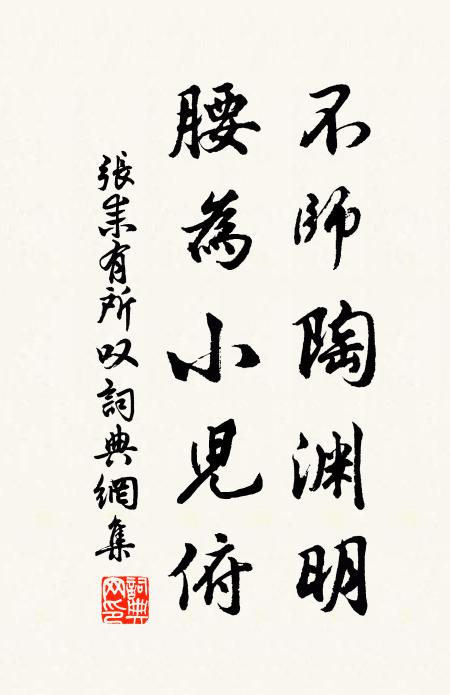 不師陶渊明
腰為小兒俯
張耒有所叹詞典網集
詞典
网印